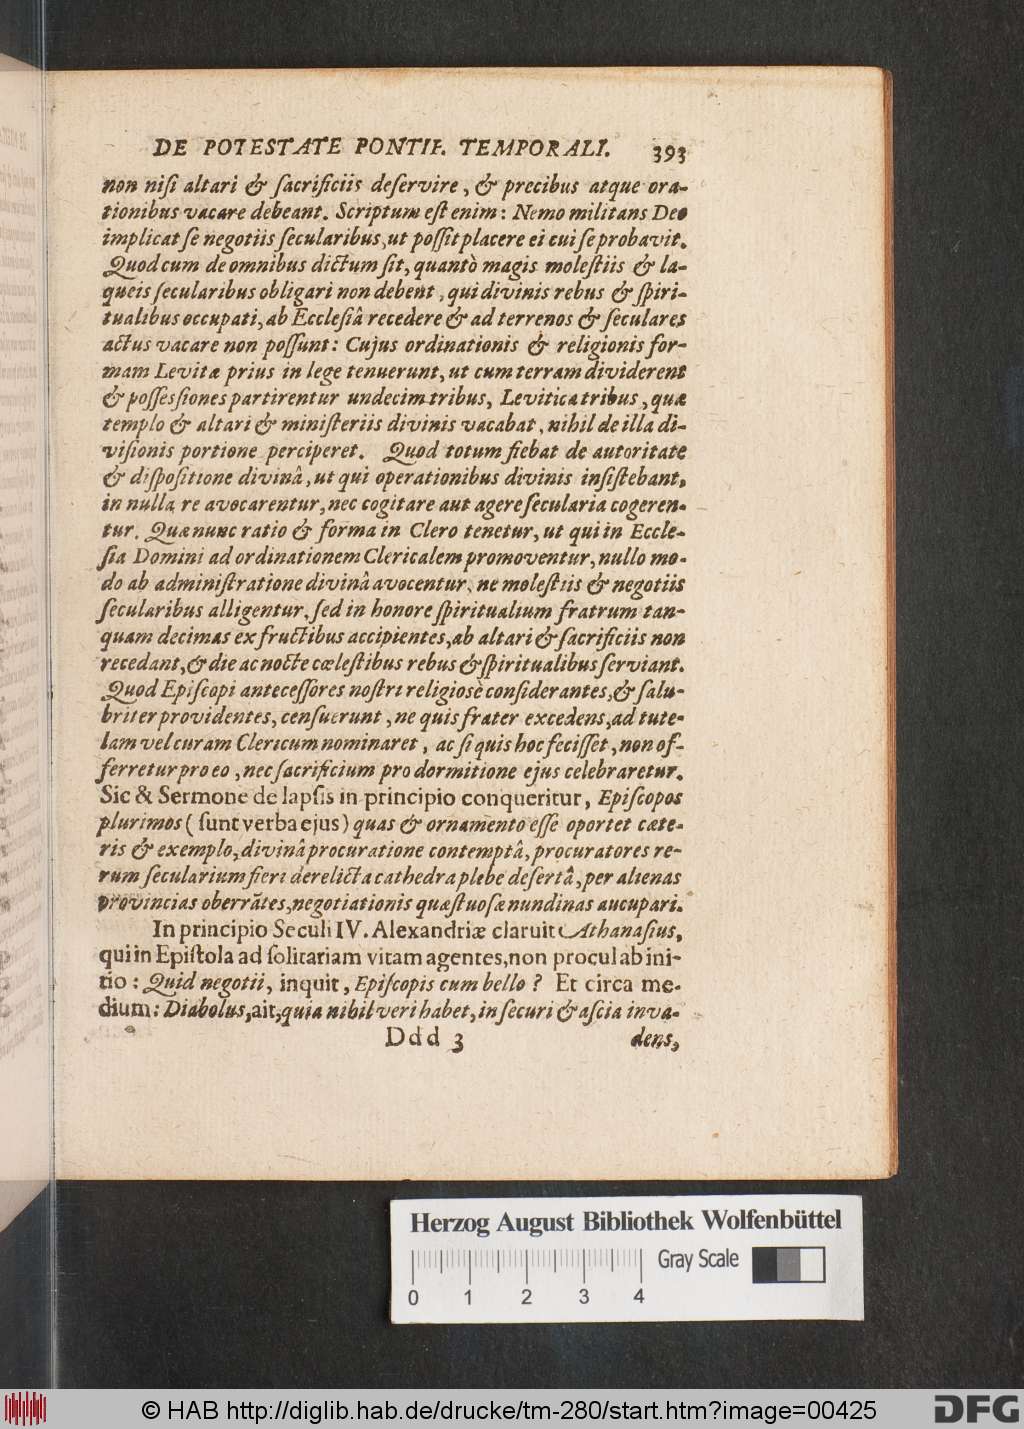 DE POTESTATE PONTIF. TEMPORALI. 393
non niſi altari & ſacrificiis deſervire, & precibus atque ora-
tionibus vacare debeant. Scriptum eſt enim: Nemo militans Deo
implicat ſe negotiis ſecularibus, ut poſſit placere ei cui ſe probavit.
Quod cum de omnibus dictum ſit, quantò magis moleſtiis & la-
queis ſecularibus obligari non debent, qui divinis rebus & ſpiri-
tualibus occupati, ab Eccleſiâ recedere & ad terrenos & ſeculares
actus vacare non poſſunt: Cujus ordinationis & religionis for-
mam Levitæ prius in lege tenuerunt, ut cum terram dividerent
& poſſeſſiones partirentur undecim tribus, Levitica tribus, quæ
templo & altari & miniſteriis divinis vacabat, nihil de illa di-
viſionis portione perciperet. Quod totum fiebat de autoritate
& diſpoſitione divinâ, ut qui operationibus divinis inſiſtebant,
in nulla re avocarentur, nec cogitare aut agere ſecularia cogeren-
tur. Quæ nunc ratio & forma in Clero tenetur, ut qui in Eccle-
ſia Domini ad ordinationem Clericalem promoventur, nullo mo-
do ab adminiſtratione divinâ avocentur, ne moleſtiis & negotiis
ſecularibus alligentur, ſed in honore ſpiritualium fratrum tan-
quam decimas ex fructibus accipientes, ab altari & ſacrificiis non
recedant, & die ac nocte cæleſtibus rebus & ſpiritualibus ſerviant.
Quod Epiſcopi anteceſſores noſtri religiosè conſiderantes, & ſalu-
briter providentes, cenſuerunt, ne quis frater excedens, ad tute-
lam vel curam Clericum nominaret, ac ſi quis hoc feciſſet, non of-
ferretur pro eo, nec ſacrificium pro dormitione ejus celebraretur.
Sic & Sermone de lapſis in principio conqueritur, Epiſcopos
plurimos (ſunt verba ejus) quas & ornamento eſſe oportet cæte-
ris & exemplo, divinâ procuratione contemptâ, procuratores re-
rum ſecularium fieri derelicta cathedra plebe deſertâ, per alienas
provincias oberrãtes, negotiationis quæſtuoſæ nundinas aucupari.
In principio Seculi IV. Alexandriæ claruit Athanaſius,
qui in Epiſtola ad ſolitariam vitam agentes, non procul ab ini-
tio: Quid negotii, inquit, Epiſcopis cum bello? Et circa me-
dium: Diabolus, ait, quia nihil veri habet, in ſecuri & aſcia inva-
Ddd 3 dens,
Herzog August Bibliothek Wolfenbüttel
Gray Scale
0 1 2 3 4
© HAB http://diglib.hab.de/drucke/tm-280/start.htm?image=00425
DFG